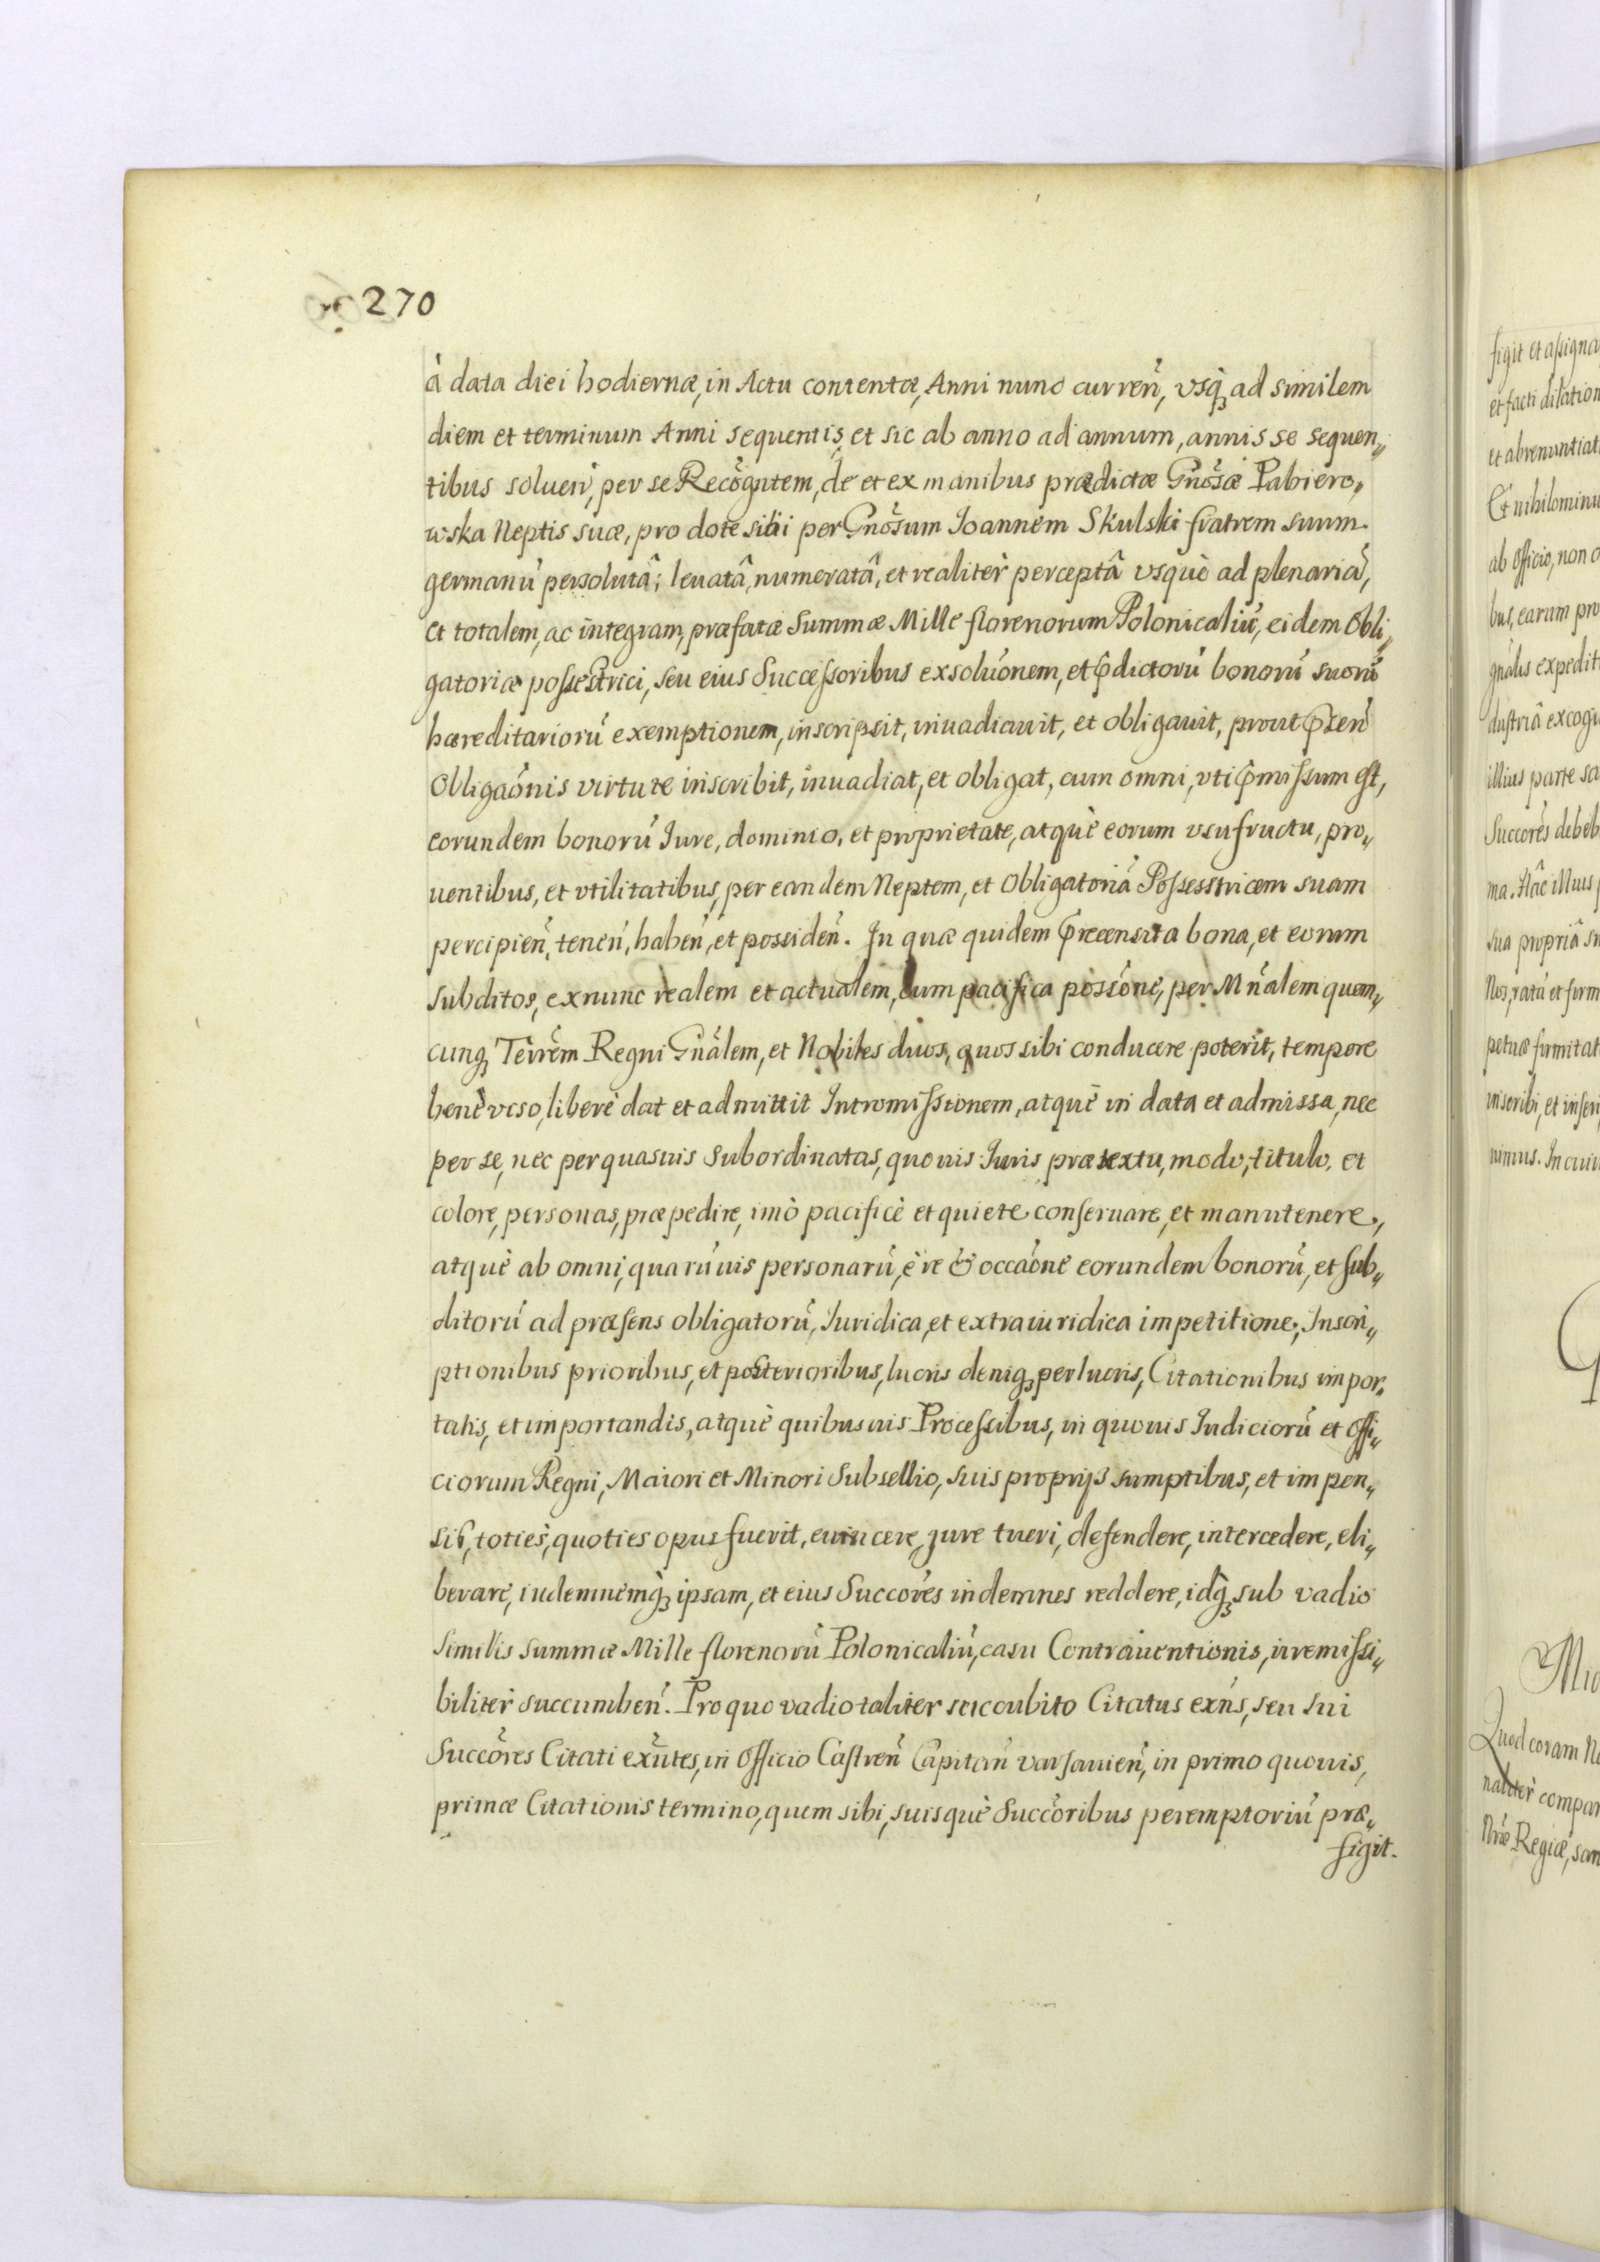 270
à data diei hodiernæ, in Actu contentæ, Anni nunc curreñ, vsq₃ ad similem
diem et terminum Anni sequentis, et sic ab anno ad annum, annis se sequen„
tibus soluen̄, per se Recōgntem, de et ex manibus prædictæ Gn̄osæ Pabiero„
wska Neptis suæ, pro dote sibi per Gn̄osum Joannem Skulski fratrem suum
germanū persolutâ; leuatâ, numeratâ, et realitèr perceptâ vsquè ad plenariā,
et totalem, ac integram, præfatæ Summæ Mille florenorum Polonicaliū, eidem Obli„
gatoriæ possestrici, seu eius Successoribus exsolūonem, et p̄dictorū bonorū suorū
hæreditariorū exemptionem, inscripsit, inuadiauit, et obligauit, prout p̄sen̄
Obligaōnis virtute inscribit, inuadiat, et obligat, cum omni, vti p̄missum est,
eorundem bonorū Jure, dominio, et proprietate, atquè eorum vsufructu, pro„
uentibus, et vtilitatibus, per eandem Neptem, et Obligatoriā Possesstricem suam
percipien̄, tenen̄, haben̄, et possiden̄. In quæ quidem p̄recensita bona, et eorum
subditos, exnunc realem et actualem, cum pacifica possōne, per Mn̄alem quem„
cunq₃ Terrēm Regni Gn̄alem, et Nobiles duos, quos sibi conducere poterit, tempore
benè viso, liberè dat et admittit Intromissionem, atquè in data et admissa, nec
per se, nec per quasuis subordinatas, quouis Juris prætextu, modo, titulo, et
colore, personas, præpedire, imò pacificè et quiete conseruare, et manutenere,
atquè ab omni, quarūuis personarū, è re & occāone eorundem bonorū, et sub„
ditorū ad præsens obligatorū, Juridica, et extraiuridica impetitione, Inscri„
ptionibus prioribus, et posterioribus, lucris deniq₃ perlucris, Citationibus impor„
tatis, et importandis, atquè quibusuis Processibus, in quouis Judiciorū et Offi„
ciorum Regni, Maiori et Minori Subsellio, suis proprijs sumptibus, et impen„
sis, toties, quoties opus fuerit, euincere, jure tueri, defendere, intercedere, eli„
berare, indemnemq₃ ipsam, et eius Succōres indemnes reddere, idq₃ sub vadio
similis summæ Mille florenorū Polonicaliū, casu Contrauentionis, irremissi„
bilitèr succumben̄. Pro quo vadio taliter succubito Citatus exn̄s, seu sui
Succōres Citati exn̄tes, in Officio Castren̄ Capitan̄ varsauien̄, in primo quouis,
primæ Citationis termino, quem sibi, suisquè Succōribus peremptoriū præ„
figit.
figit et assigna
et facti dilation
et abrenuntiat
Et nihilominu
ab Officio, non o
bus, earum pro
gn̄alis expedit
dustriâ excogi
illius parte sa
Succōres debeb
ma. Hāc illius
sua propriâ
Nos, ratū et firm
petuæ firmitat
inscribi, et inser
nimus. In cuiu
Quod coram N
nalitèr compar
Nr̄æ Regiæ, san